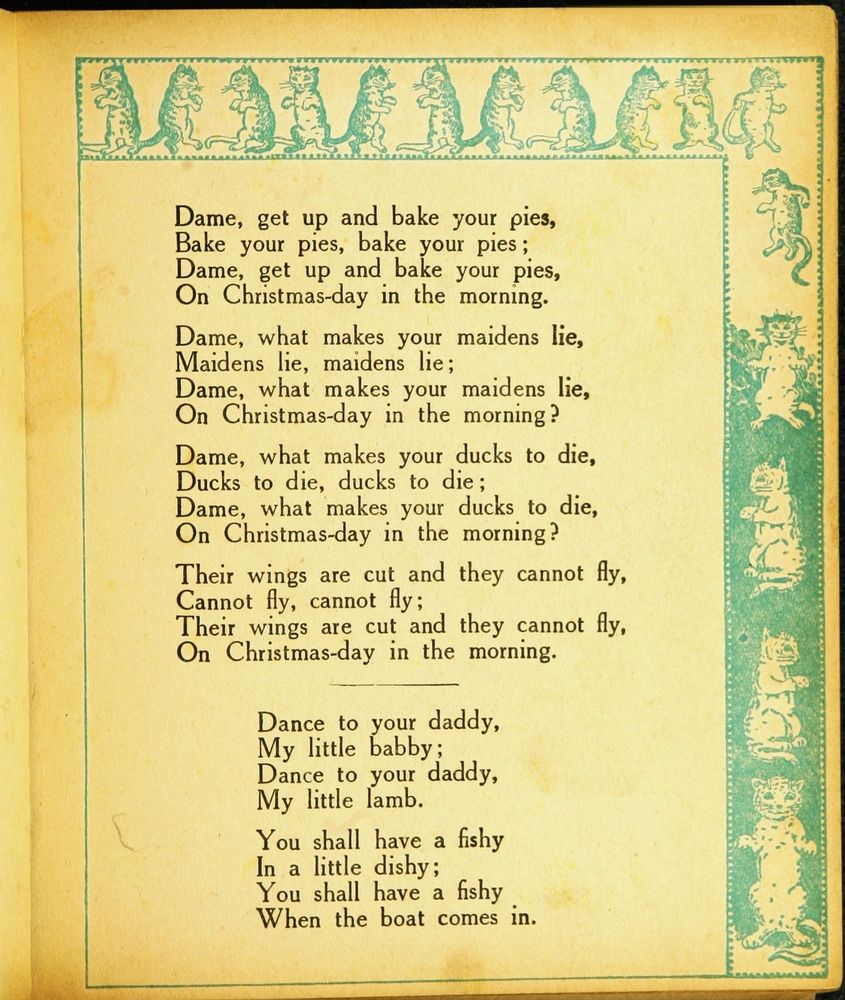 Dame, get up and bake your pies,
Bake your pies, bake your pies;
Dame, get up and bake your pies,
On Christmas-day in the morning.
Dame, what makes your maidens lie,
Maidens lie, maidens lie;
Dame, what makes your maidens lie,
On Christmas-day in the morning?
Dame, what makes your ducks to die,
Ducks to die, ducks to die;
Dame, what makes your ducks to die,
On Christmas-day in the morning?
Their wings are cut and they cannot fly,
Cannot fly, cannot fly;
Their wings are cut and they cannot fly,
On Christmas-day in the morning.
Dance to your daddy,
My little babby;
Dance to your daddy,
My little lamb.
You shall have a fishy
In a little dishy;
You shall have a fishy
When the boat comes in.